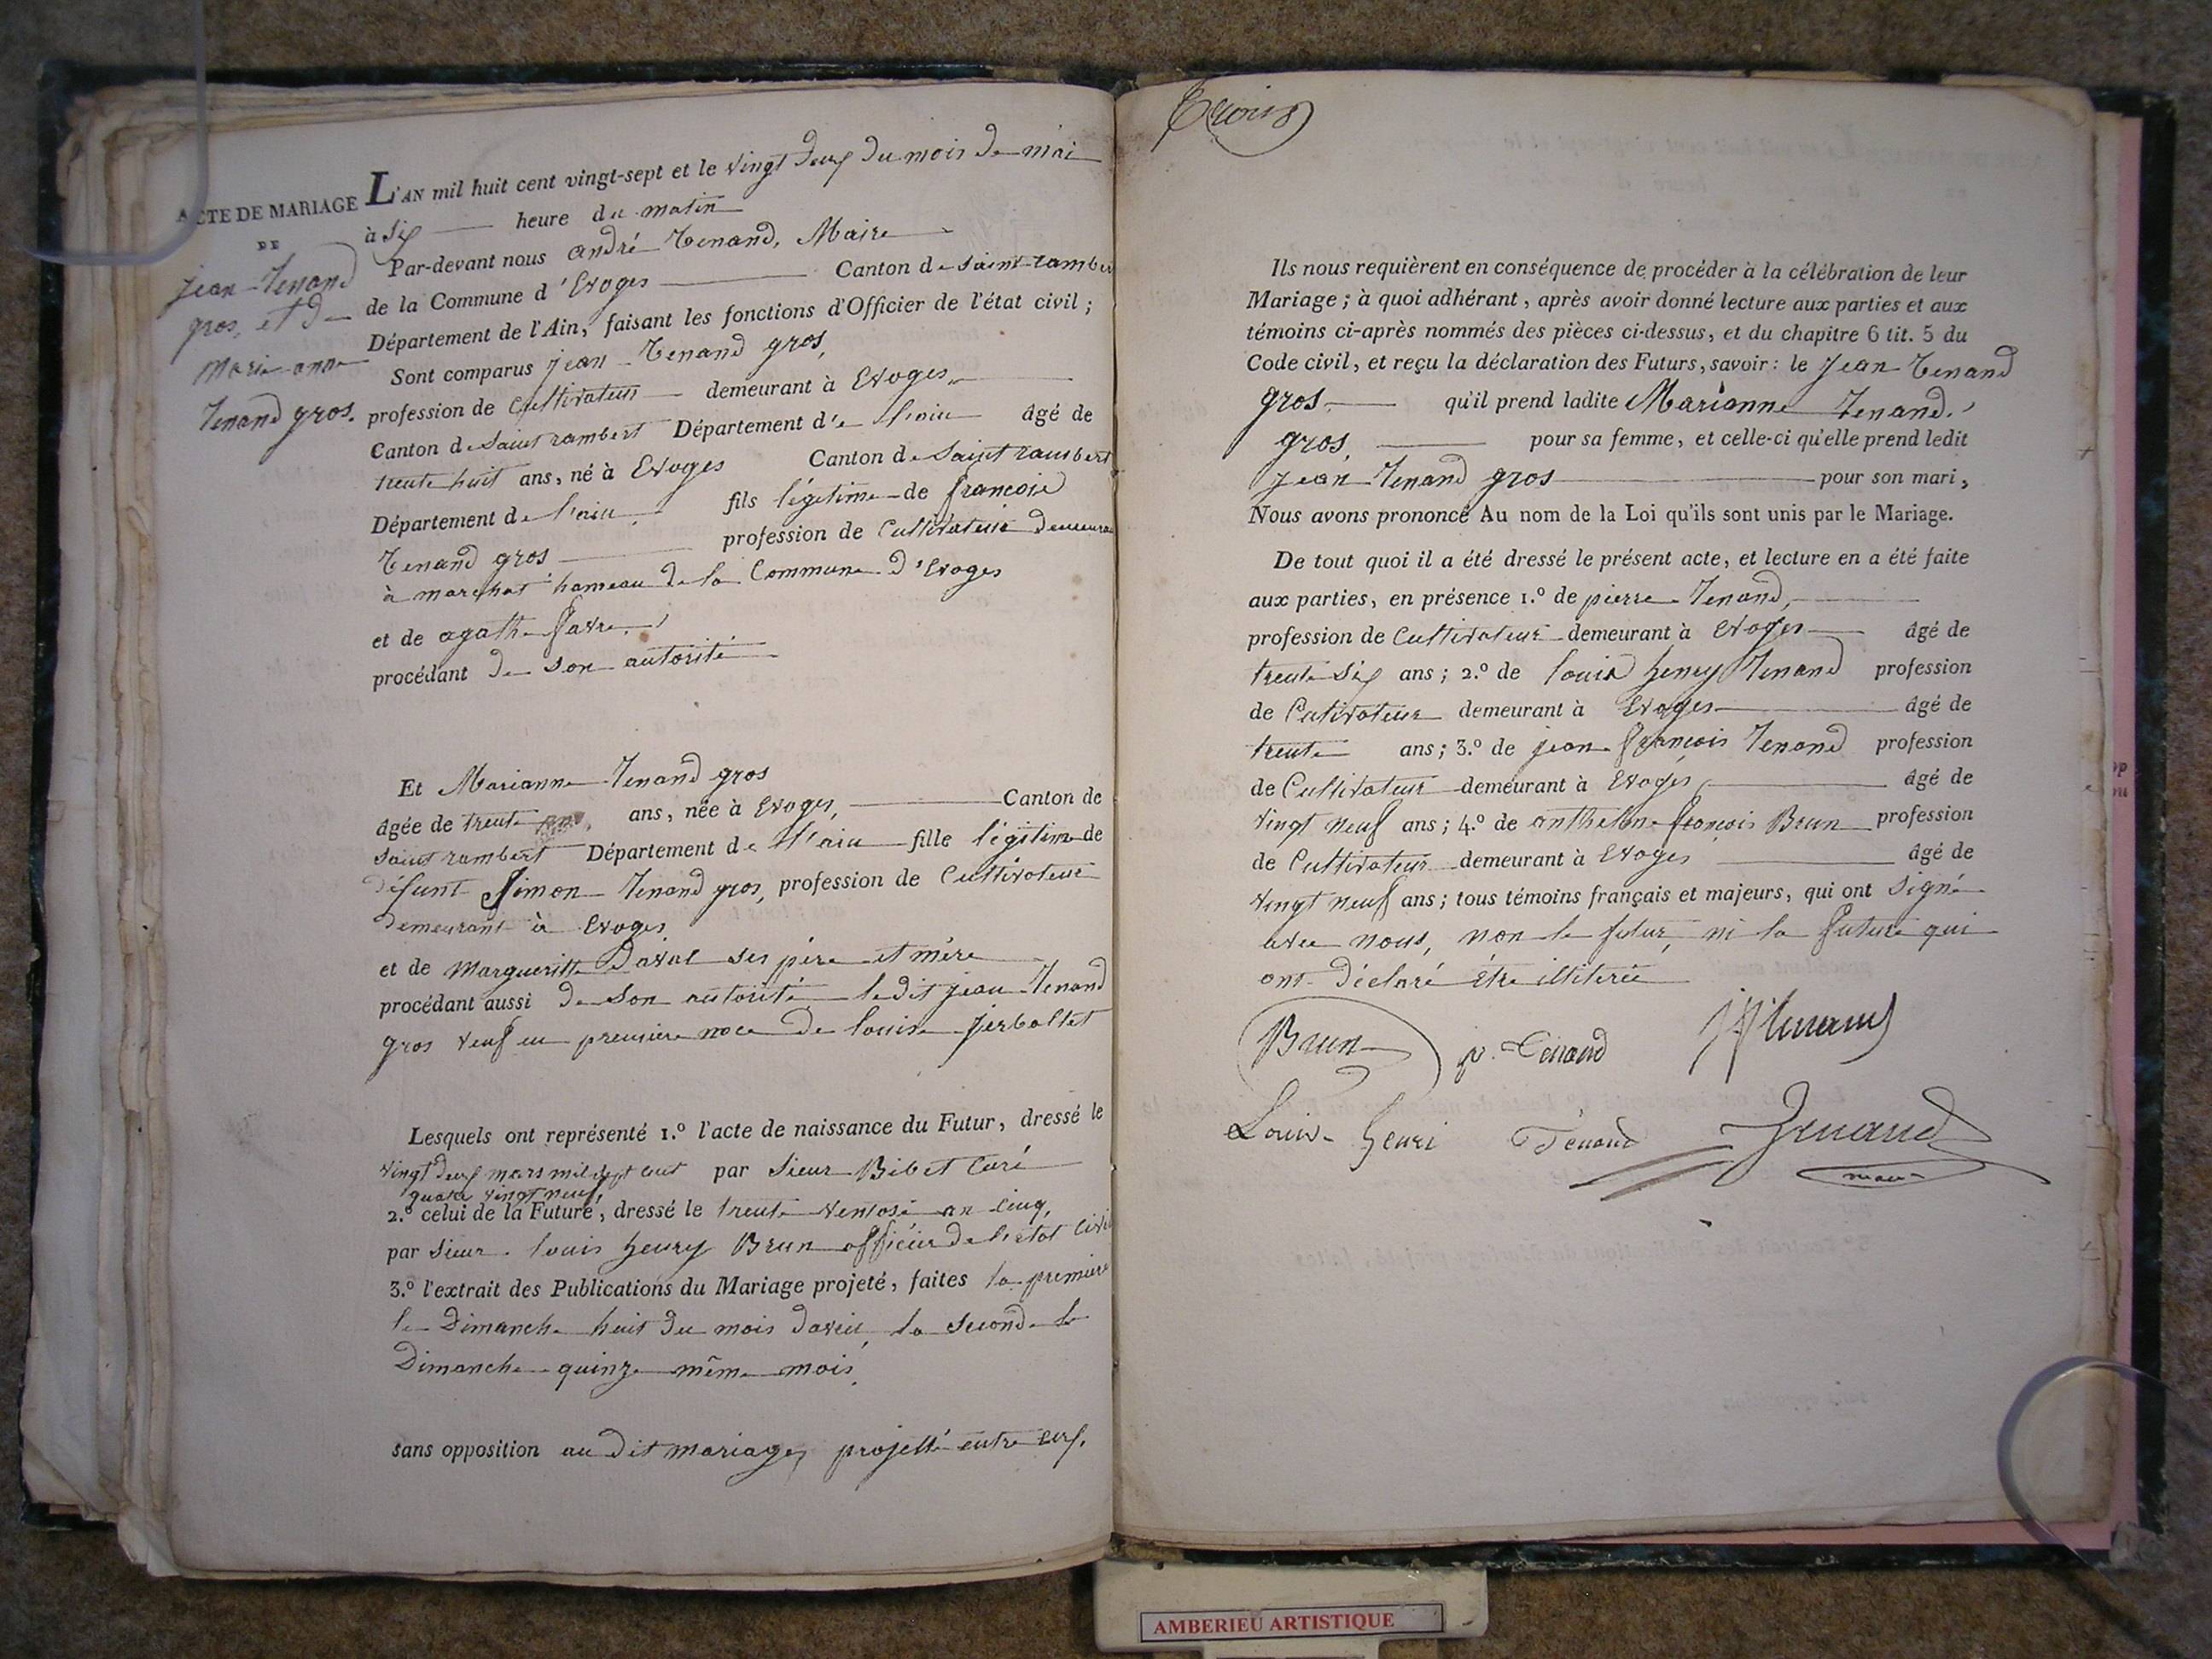 ACTE DE MARIAGE
DE
jean Tenand
gros, et de
Marie anne
Tenand gros.
L'AN mil huit cent vingt-sept et le vingt deux du mois de mai
à six heure du matin
Par-devant nous andré Tenand, Maire
de la Commune d'Evoges Canton de Saint-rambert
Département de l'Ain, faisant les fonctions d'Officier de l'état civil ;
Sont comparus jean Tenand gros,
profession de Cultivateur demeurant à Evoges,
Canton de Saint rambert Département de l'ain âgé de
trente huit ans, né à Evoges Canton de Saint rambert
Département de l'ain fils légitime de francois
Tenand gros profession de Cultivateur demeurant
à marchat hameau de la Commune d'Evoges
et de agathe favre,
procédant de son autorité
Et Marianne Tenand gros
âgée de trente ans, née à Evoges, Canton de
saint rambert Département de l'ain fille légitime de
défunt Simon Tenand gros, profession de Cultivateur
demeurant à Evoges
et de Margueritte Daval ses père et mère
procédant aussi de son autorité ledit jean Tenand
gros veuf en premiere noce de louise
Lesquels ont représenté 1.º l'acte de naissance du Futur, dressé le
vingt deux mars mil sept cent par Sieur Bibet Curé
quatre vingt neuf,
2.º celui de la Future, dressé le trente ventose an cinq,
par Sieur louis henry Brun officier de l'etat civil
3.º l'extrait des Publications du Mariage projeté, faites la premiere
le Dimanche huit du mois davril, la seconde le
Dimanche quinze même mois,
sans opposition au dit mariage, projetté entre eux.
Ils nous requièrent en conséquence de procéder à la célébration de leur
Mariage ; à quoi adhérant, après avoir donné lecture aux parties et aux
témoins ci-après nommés des pièces ci-dessus, et du chapitre 6 tit. 5 du
Code civil, et reçu la déclaration des Futurs, savoir : le Jean Tenand
gros, qu'il prend ladite Marianne Tenand
gros, pour sa femme, et celle-ci qu'elle prend ledit
Jean Tenand gros pour son mari,
Nous avons prononcé Au nom de la Loi qu'ils sont unis par le Mariage.
De tout quoi il a été dressé le présent acte, et lecture en a été faite
aux parties, en présence 1.º de pierre Tenand,
profession de Cultivateur demeurant à Evoges âgé de
trente six ans ; 2.º de louis henry Tenand profession
de Cultivateur demeurant à Evoges âgé de
trente ans ; 3.º de jean françois Tenand profession
de Cultivateur demeurant à Evoges âgé de
vingt neuf ans ; 4.º de anthelme françois Brun profession
de Cultivateur demeurant à Evoges âgé de
vingt neuf ans ; tous témoins français et majeurs, qui ont signé
avec nous, non le futur, ni la future qui
ont déclaré être
Brun p. Tenand
Louis henri Tenand Tenand
maire
AMBERIEU ARTISTIQUE